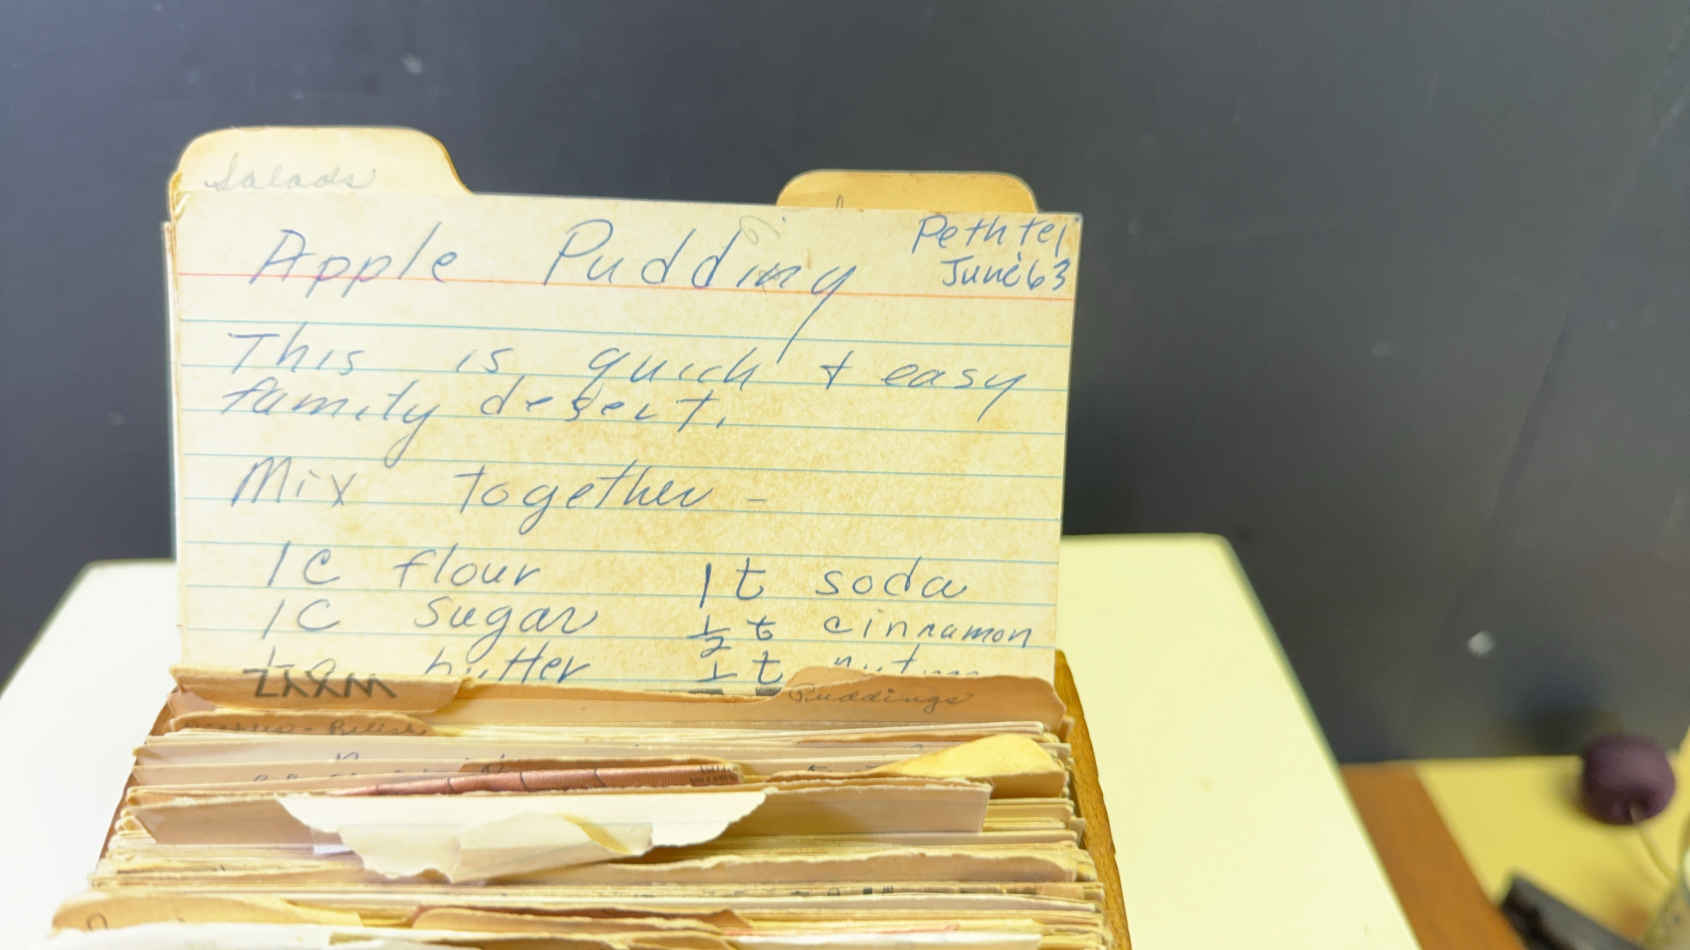 Salads
Apple Pudding
Pethtel
June 63
This is quick + easy
family desert.
Mix together -
1 C flour 1 t soda
1 C sugar ½ t cinnamon
butter ½ t
Puddings